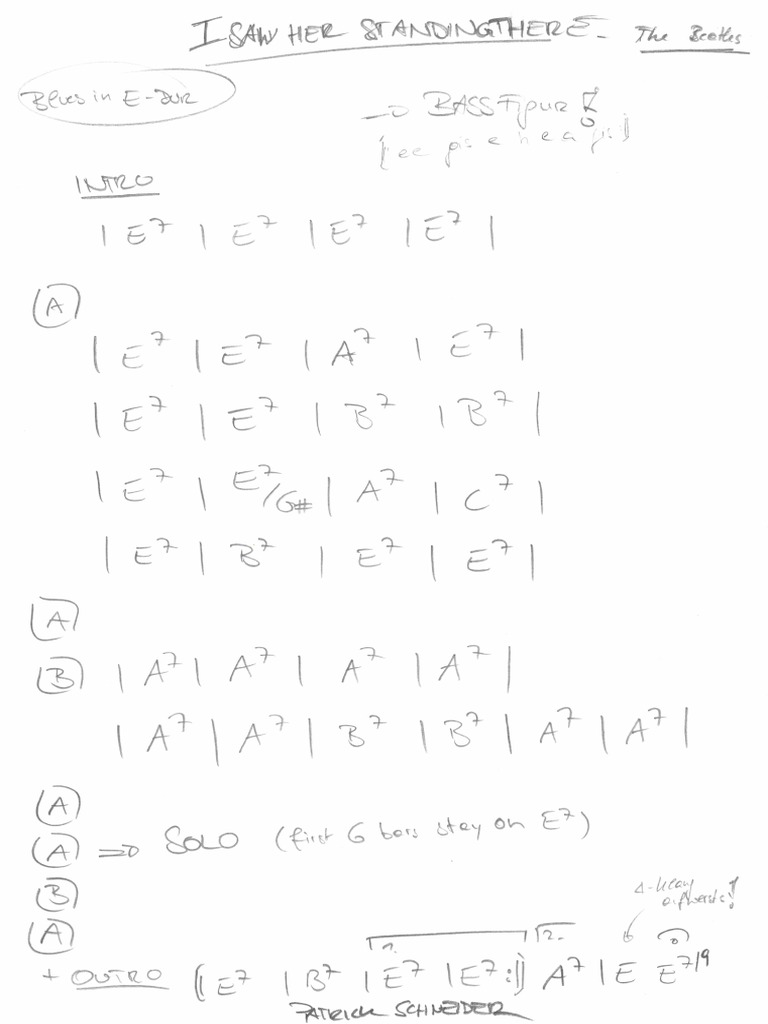 I SAW HER STANDING THERE - The Beatles
Blues in E-DUR
→ BASS Figur
[ee gis e h e a gis]
INTRO
| E7 | E7 | E7 | E7 |
A
| E7 | E7 | A7 | E7 |
| E7 | E7 | B7 | B7 |
| E7 | E7/G# | A7 | C7 |
| E7 | B7 | E7 | E7 |
A
B | A7 | A7 | A7 | A7 |
| A7 | A7 | B7 | B7 | A7 | A7 |
A
A ⇒ SOLO (first 6 bars stay on E7)
B
A
+ OUTRO [: E7 | B7 | 1. E7 | E7 :] 2. A7 | E E7/9
PATRICK SCHNEIDER